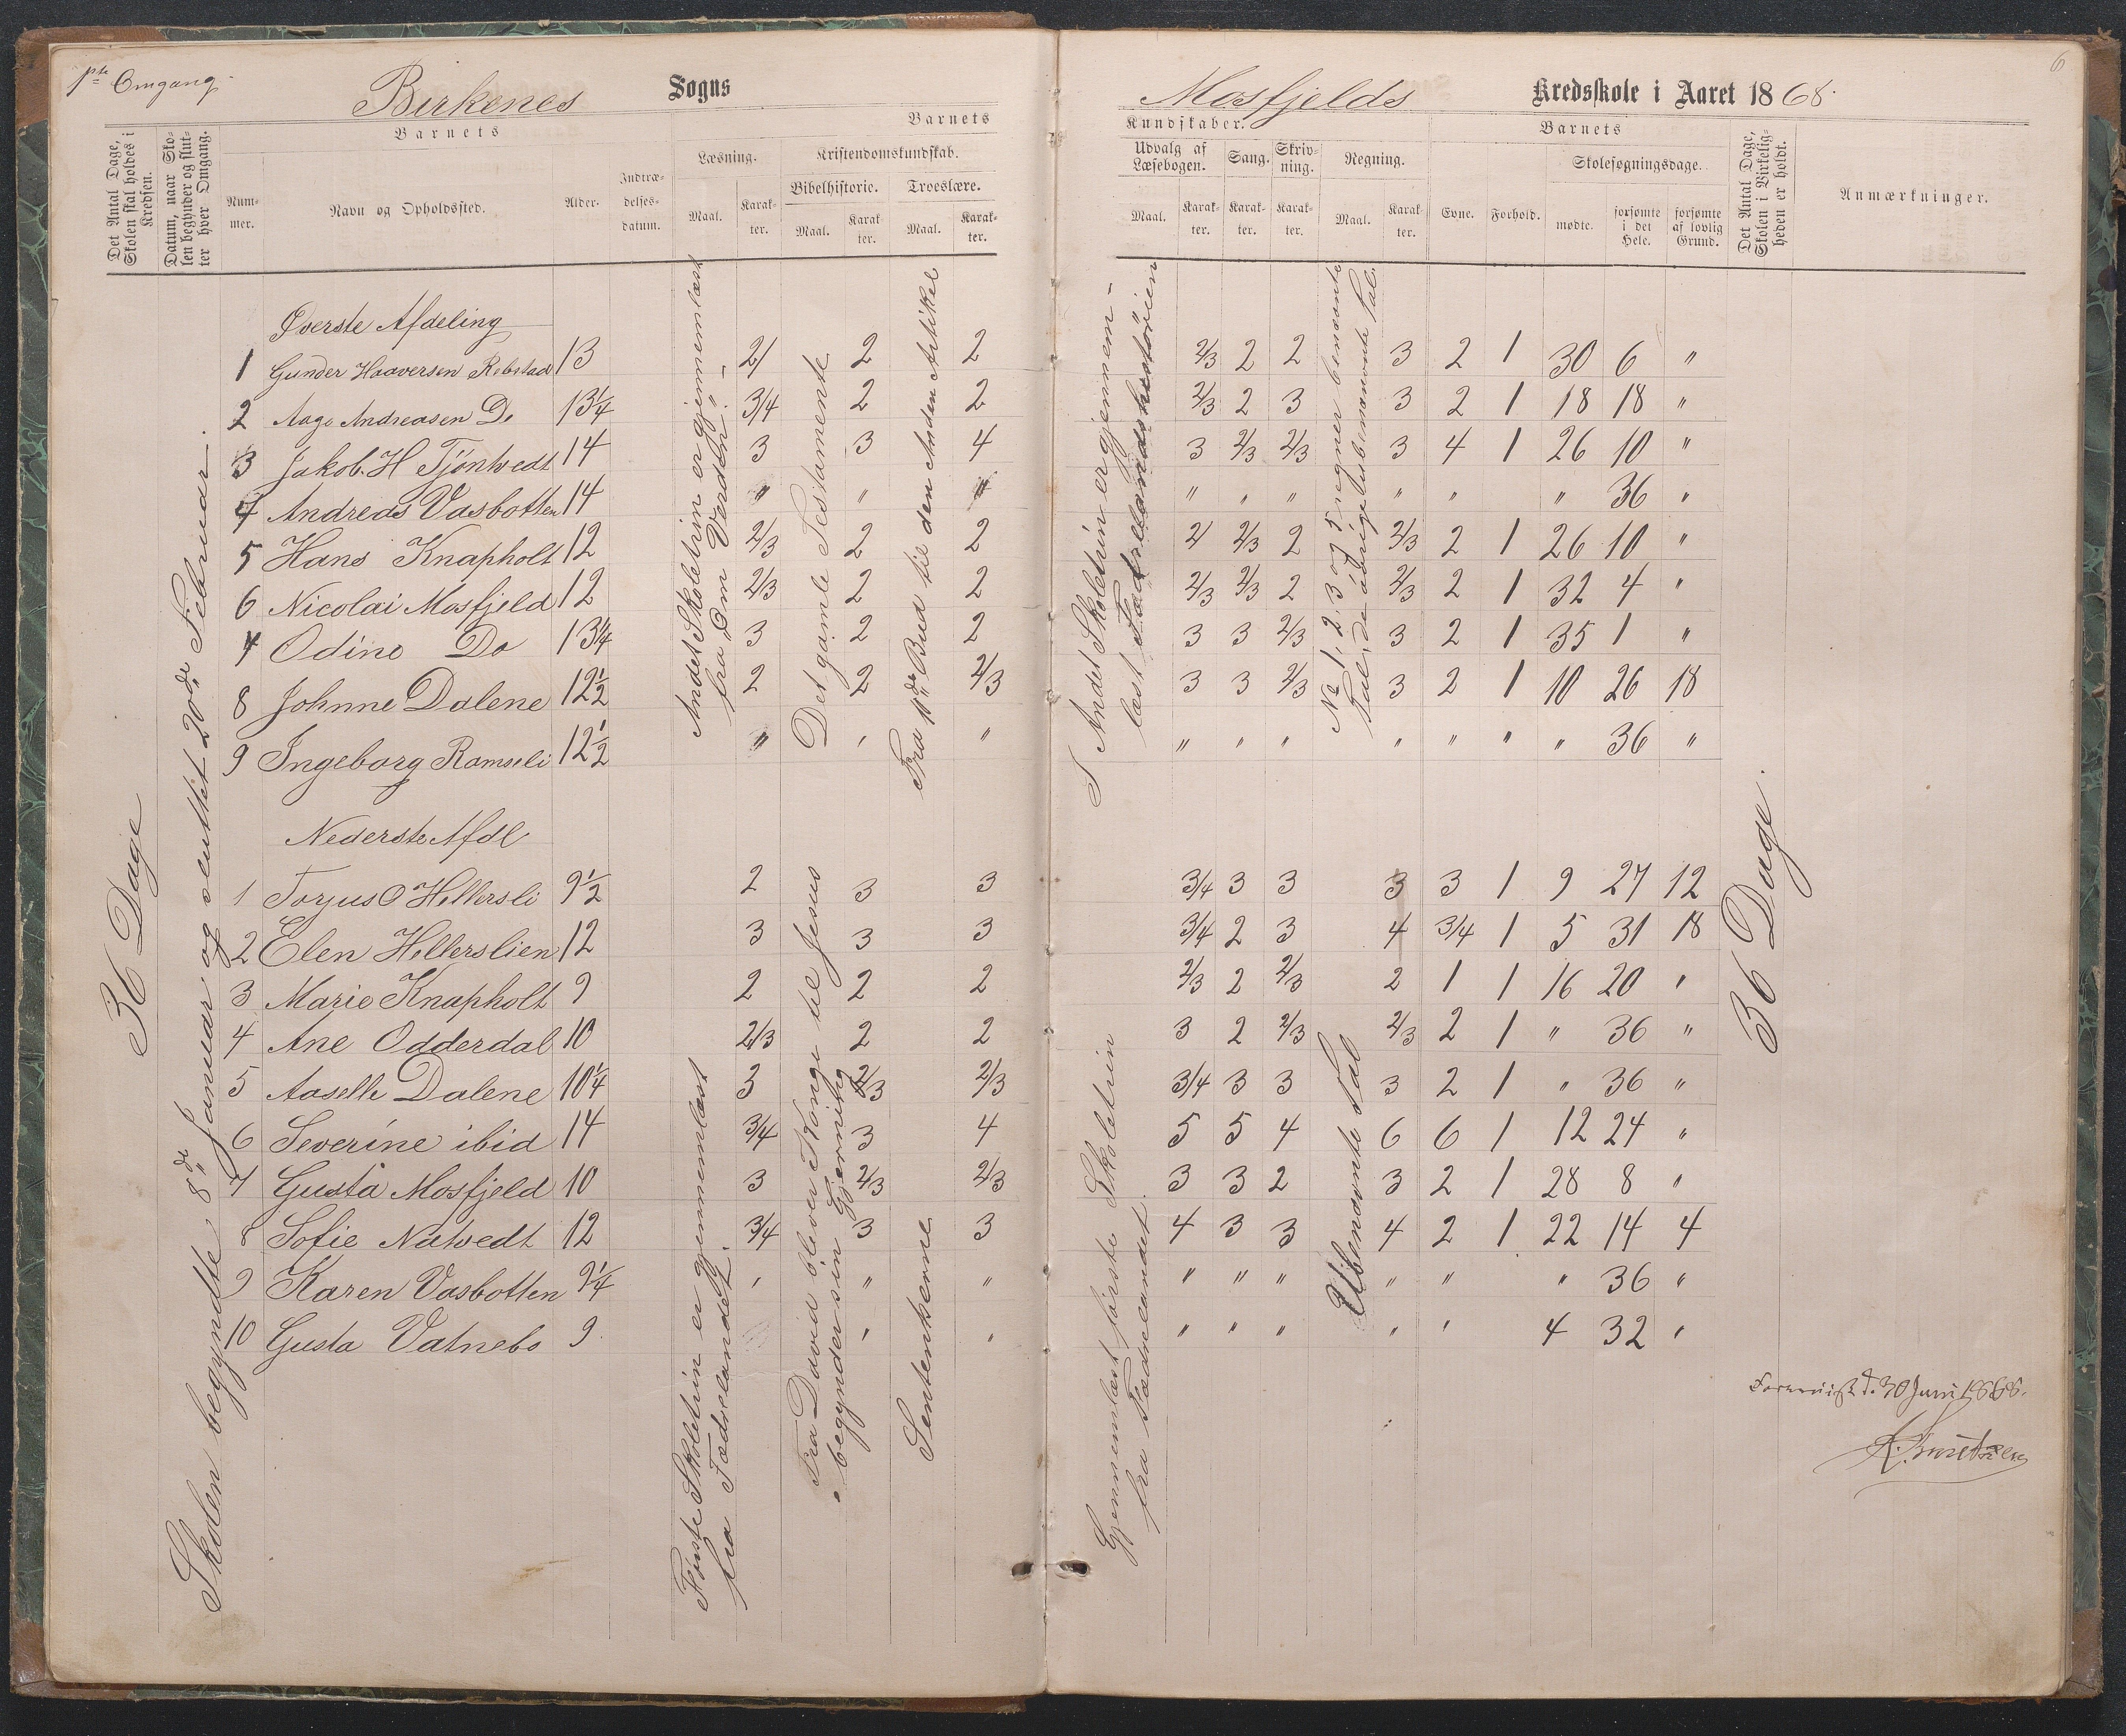 1ste Omgang.
Birkenes Sogns
Mosfjelds Kredsskole i Aaret 1868.
6
Det Antal Dage, Skolen skal holdes i Kredsen.
Datum, naar Skolen begynder og slutter hver Omgang.
Barnets
Nummer.
Navn og Opholdssted.
Alder.
Indtrædelsesdatum.
Barnets
Læsning.
Maal.
Karakter.
Kristendomskundskab.
Bibelhistorie.
Maal.
Karakter.
Troeslære.
Maal.
Karakter.
Kundskaber.
Udvalg af Læsebogen.
Maal.
Karakter.
Sang.
Karakter.
Skrivning.
Karakter.
Regning.
Maal.
Karakter.
Barnets
Evne.
Forhold.
Skolesøgningsdage.
mødte.
forsømte i det Hele.
forsømte af lovlig Grund.
Det Antal Dage, Skolen i Virkeligheden er holdt.
Anmærkninger.
36 Dage
Skolen begyndte 8de Januar og sluttet 20de Februar.
Øverste Afdeling
Andet Skoletrin er gjennemlæst
fra "Om Verden."
Det gamle Testamente
Fra 10de Bud til den Anden Artikel
I Andet Skoletrin er gjennem-
læst Fædrelandshistorien
No 1, 2, 3 og 5 regner benævnte
Tal, de øvrige ubenævnte Tal.
1 Gunder Haaversen Rebstad 13 2/1 2 2 2/3 2 2 3 2 1 30 6 "
2 Aage Andreasen Do 13 1/4 3/4 2 2 2/3 2 3 3 2 1 18 18 "
3 Jakob. H Tjöntvedt 14 3 3 4 3 2/3 2/3 3 4 1 26 10 "
4 Andreas Vasbotten 14 " " " " " " " " " 36 "
5 Hans Knapholt 12 2/3 2 2 2 2/3 2 2/3 2 1 26 10 "
6 Nicolai Mosfjeld 12 2/3 2 2 2/3 2/3 2 2/3 2 1 32 4 "
7 Odine Do 13 1/4 3 2 2 3 3 2/3 3 2 1 35 1 "
8 Johnne Dalene 12 1/2 2 2 2/3 3 3 2/3 3 2 1 10 26 18
9 Ingeborg Ramseli 12 1/2 " " " " " " " " " " 36 "
Nederste Afdl
Første Skoletrin er gjennemlæst
fra Fædrelandet.
Fra David bliver Konge til Jesus
begynder sin Gjerning
Sentenserne
Gjennemlæst første Skoletrin
fra Fædrelandet.
Ubenævnte Tal
1 Torjus O Hellersli 9 1/2 2 3 3 3/4 3 3 3 3 1 9 27 12
2 Elen Hellerslien 12 3 3 3 3/4 2 3 4 3/4 1 5 31 18
3 Marie Knapholt 9 2 2 2 2/3 2 2/3 2 1 1 16 20 "
4 Ane Odderdal 10 2/3 2 2 3 2 2/3 2/3 2 1 " 36 "
5 Aaselle Dalene 10 1/4 3 2/3 2/3 3/4 3 3 3 2 1 " 36 "
6 Severine ibid 14 3/4 3 4 5 5 4 6 6 1 12 24 "
7 Gusta Mosfjeld 10 3 2/3 2/3 3 3 2 3 2 1 28 8 "
8 Sofie Natvedt 12 3/4 3 3 4 3 3 4 2 1 22 14 4
9 Karen Vasbotten 9 1/4 " " " " " " " " " 36 "
10 Gusta Vatnebo 9 " " " " " " " 4 32 "
36 Dage.
d. 30 Juni 1868.